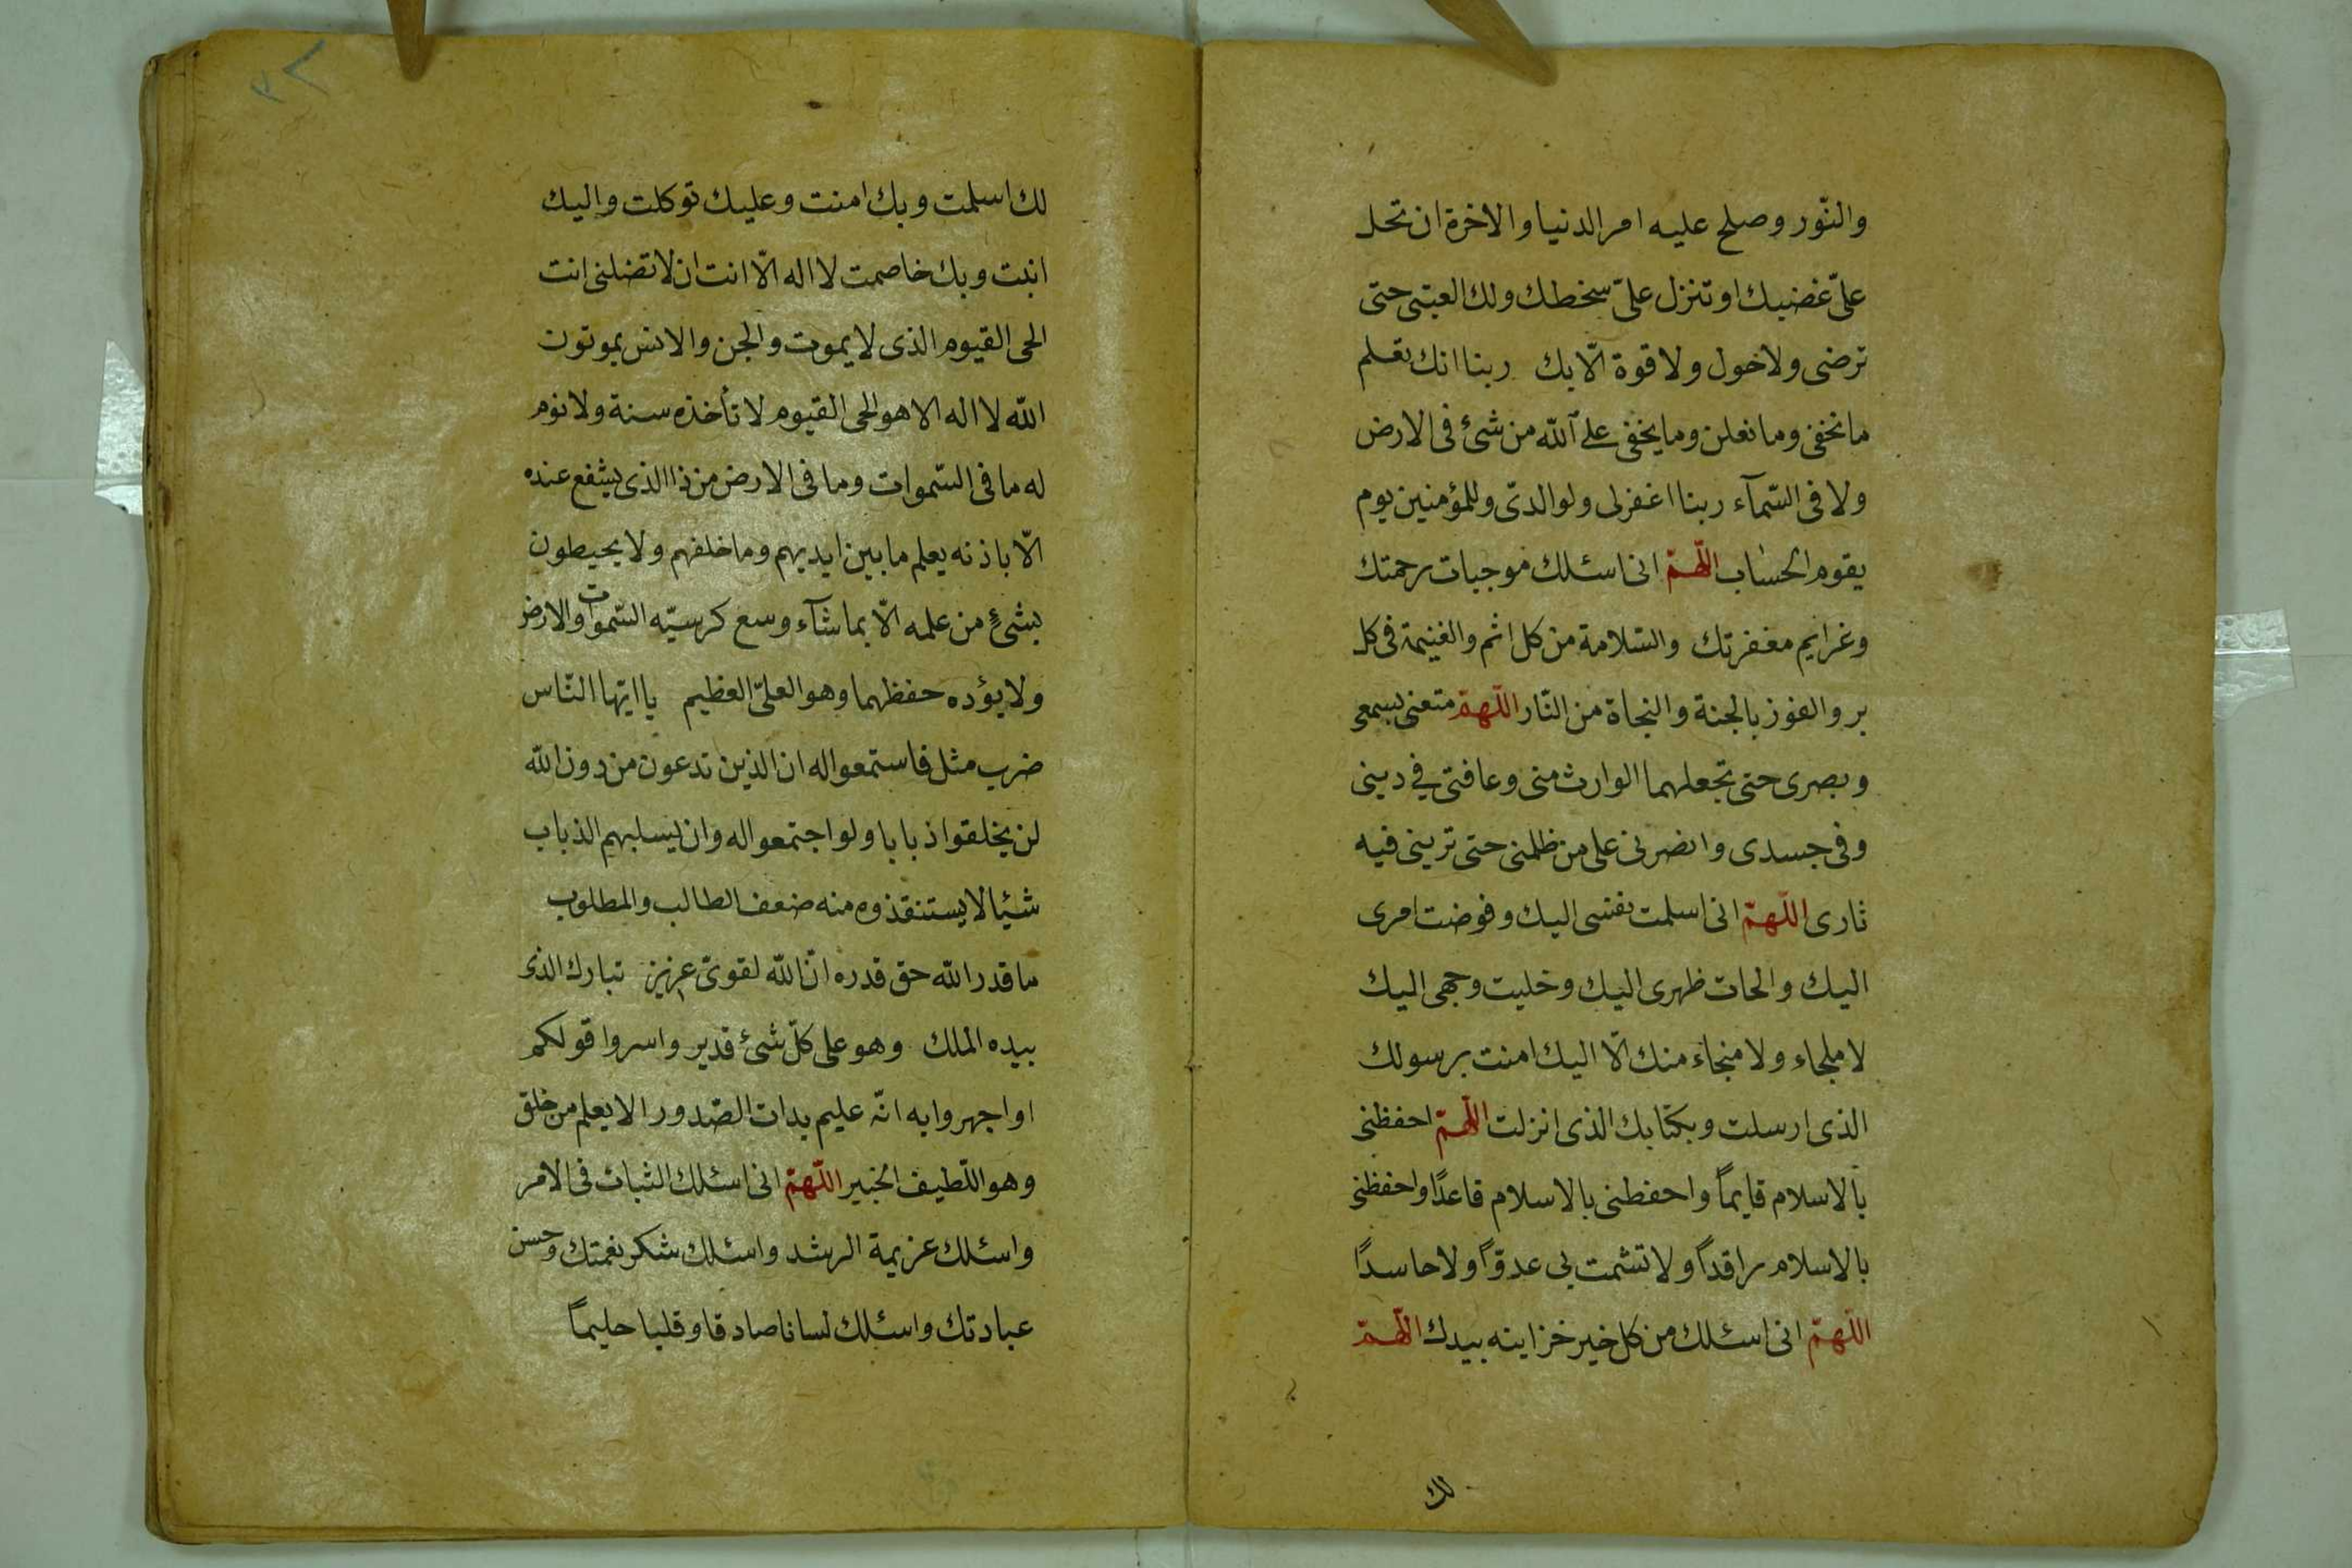 والنّور وصلح عليه امر الدنيا والاخرة ان تحل
علىّ غضبك او تنزل علىّ سخطك ولك العتبى حتى
ترضى ولاخول ولا قوة الّا بك ربنا انك تعلم
ما نخفى وما نعلن وما يخفى على الله من شئ فى الارض
ولا فى السّمآء ربنا اغفرلى ولوالدىّ وللمؤمنين يوم
يقوم الحساب اللّهمّ انى اسئلك موجبات رحمتك
وغرايم مغفرتك والسّلامة من كل اثم والغنيمة فى كل
بر والفوز بالجنة والنجاة من النّار اللّهمّ متعنى بسمعى
وبصرى حتى تجعلهما الوارث منى وعافنى في دينى
وفى جسدى وانضرنى على من ظلمنى حتى ترينى فيه
ثارى اللّهمّ انى اسلمت نفسى اليك وفوضت امرى
اليك والحات ظهرى اليك وخليت وجهى اليك
لا ملجاء ولا منجاء منك الّا اليك امنت برسولك
الذى ارسلت وبكتابك الذى انزلت اللّهمّ احفظنى
بالاسلام قايماً واحفطنى بالاسلام قاعدًا واحفظنى
بالاسلام راقداً ولا تشمت بى عدوّاً ولا حاسدًا
اللّهمّ انى اسئلك من كل خير خزاينه بيدك اللّهمّ
لك
لك اسلمت وبك امنت وعليك توكلت واليك
انبت وبك خاصمت لا اله الّا انت ان لا تضلنى انت
الحى القيوم الذى لا يموت والجن والانس يموتون
الله لا اله الا هو الحى القيوم لا تأخذه سنة ولا نوم
له ما فى السّموات وما فى الارض من ذا الذى يشفع عنده
الّا باذنه يعلم ما بين ايديهم وما خلفهم ولا يحيطون
بشئٍ من علمه الّا بما شآء وسع كرسيّه السّموات والارض
ولا يؤده حفظهما وهو العلىّ العظيم يا ايّها النّاس
ضرب مثل فاستمعوا له ان الذين تدعون من دون الله
لن يخلقوا ذبابا ولو اجتمعوا له وان يسلبهم الذباب
شيئا لا يستنقذوه منه ضعف الطالب والمطلوب
ما قدر الله حق قدره انّ الله لقوىّ عزيز تبارك الذى
بيده الملك وهو على كلّ شئ قدير واسروا قولكم
او اجهروا به انّه عليم بدات الصّدور الا يعلم من خلق
وهو اللّطيف الخبير اللّهمّ انى اسئلك الثبات فى الامر
واسئلك عزيمة الرشد واسئلك شكر نعمتك وحسن
عبادتك واسئلك لسانا صادقا وقلبا حليماً